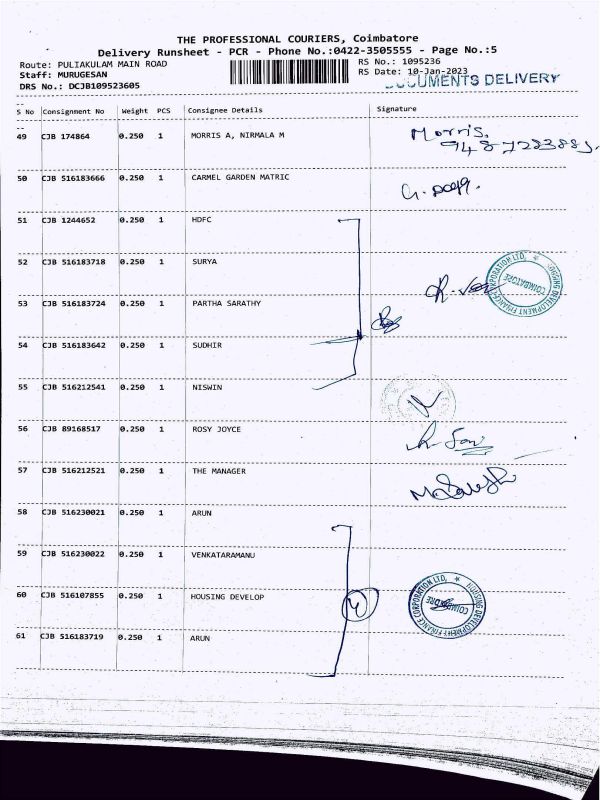 THE PROFESSIONAL COURIERS, Coimbatore
Delivery Runsheet - PCR - Phone No.:0422-3505555 - Page No.:5
Route: PULIAKULAM MAIN ROAD
RS No.: 1095236
Staff: MURUGESAN
RS Date: 10-Jan-2023
DRS No.: DCJB109523605
DOCUMENTS DELIVERY
S No Consignment No Weight PCS Consignee Details Signature
49 CJB 174864 0.250 1 MORRIS A, NIRMALA M Morris.
50 CJB 516183666 0.250 1 CARMEL GARDEN MATRIC
51 CJB 1244652 0.250 1 HDFC
52 CJB 516183718 0.250 1 SURYA
53 CJB 516183724 0.250 1 PARTHA SARATHY
54 CJB 516183642 0.250 1 SUDHIR
55 CJB 516212541 0.250 1 NISWIN
56 CJB 89168517 0.250 1 ROSY JOYCE
57 CJB 516212521 0.250 1 THE MANAGER
58 CJB 516230021 0.250 1 ARUN
59 CJB 516230022 0.250 1 VENKATARAMANU
60 CJB 516107855 0.250 1 HOUSING DEVELOP
HOUSING DEVELOPMENT FINANCE CORPORATION LTD,
61 CJB 516183719 0.250 1 ARUN